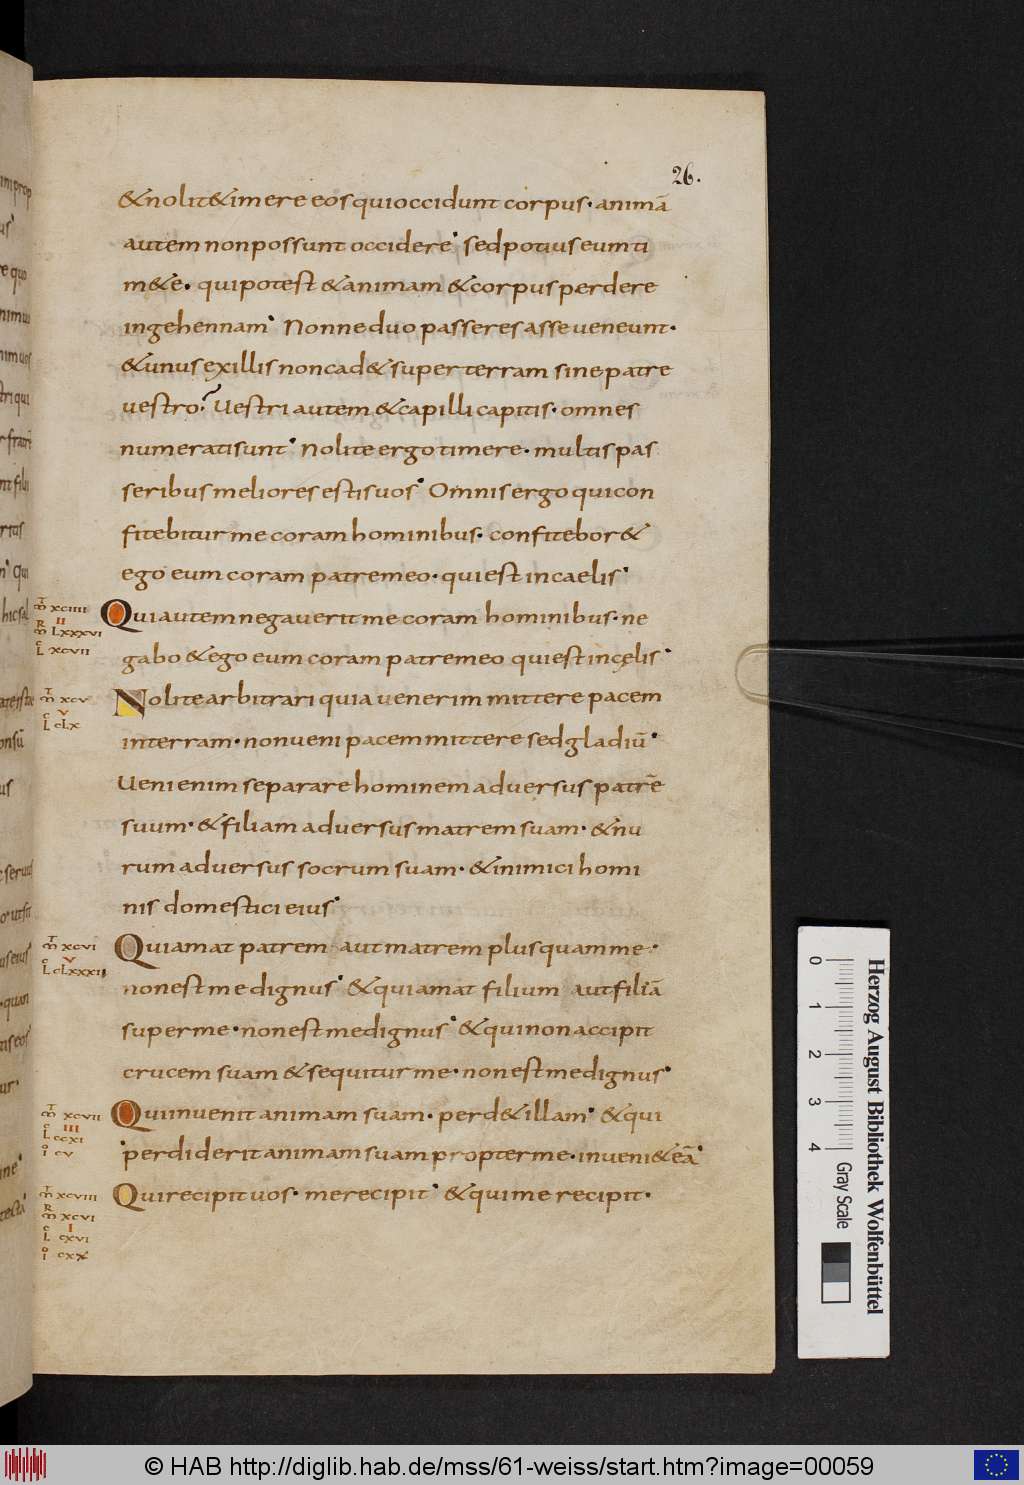 26.
&nolit&imere eos quioccidunt corpus· animā
autem nonpossunt occidere· sedpotius eum ti
m&e· quipotest &animam &corpus perdere
ingehennam· Nonne duo passeres asse veneunt·
&unus exillis noncad& super terram sine patre
vestro? Uestri autem &capilli capitis· omnes
numerati sunt· Nolite ergo timere· multis pas
seribus meliores estis vos· Omnis ergo qui con
fitebitur me coram hominibus· confitebor &
ego eum coram patremeo· quiest incaelis·
Qui autem negaverit me coram hominibus· ne
gabo &ego eum coram patremeo quiest incęlis·
Nolite arbitrari quia venerim mittere pacem
interram· non veni pacem mittere sed gladiū·
Ueni enim separare hominem adversus patrē
suum· &filiam adversus matrem suam· &nu
rum adversus socrum suam· &inimici homi
nis domestici eius·
Qui amat patrem· aut matrem plusquam me·
non est me dignus· &qui amat filium aut filiā
super me· non est me dignus· &qui non accipit
crucem suam &sequitur me· non est me dignus·
Qui invenit animam suam· perd&illam· &qui
perdiderit animam suam propter me· inveni&eā·
Qui recipit vos· me recipit· &qui me recipit·
xciiii
II
Lxxxvi
L xcvii
xcv
V
L cLx
xcvi
V
L cLxxxii
xcvii
III
L ccxi
cv
xcviii
xcvi
I
L cxvi
cxx
0 1 2 3 4
Gray Scale
Herzog August Bibliothek Wolfenbüttel
© HAB http://diglib.hab.de/mss/61-weiss/start.htm?image=00059